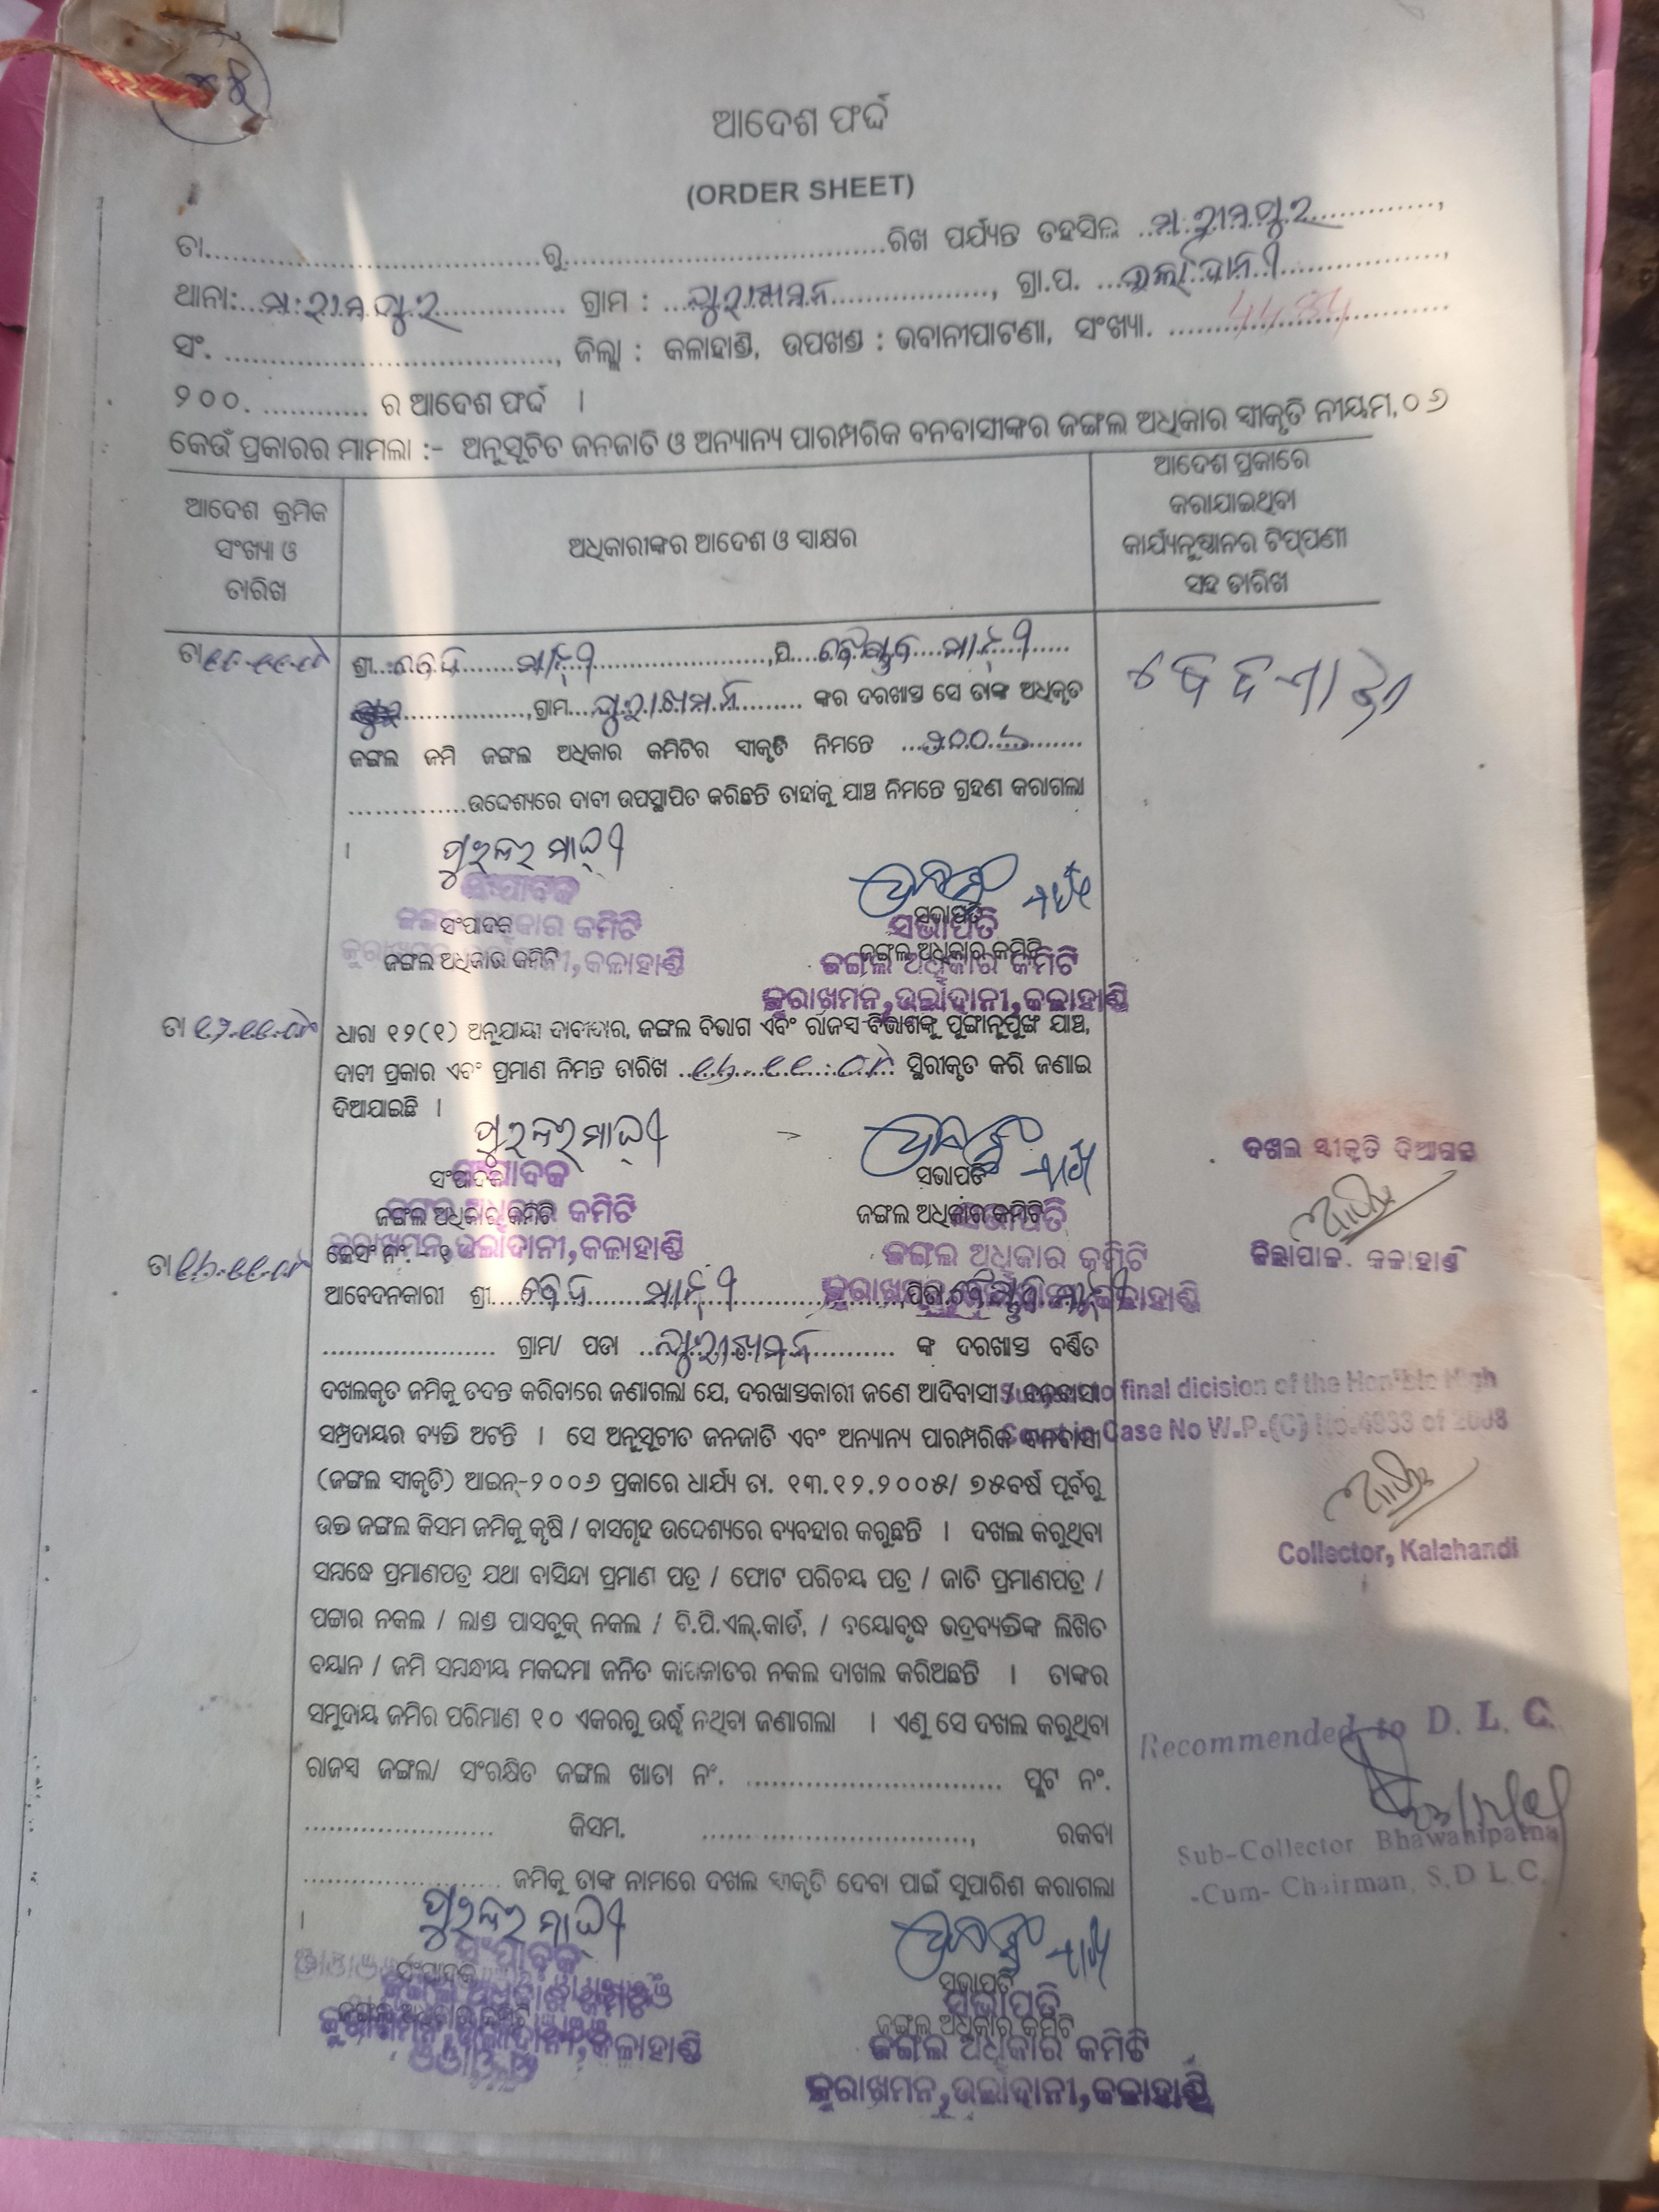 ଆଦେଶ ଫର୍ଦ୍ଦ
(ORDER SHEET)
ତା.................................ରୁ.................................ରିଖ ପର୍ଯ୍ୟନ୍ତ ତହସିଲ ମ.ରାମପୁର,
ଥାନା: ମ.ରାମପୁର ଗ୍ରାମ : କୁରାଖମନ, ଗ୍ରା.ପ. ଉର୍ଲାଦାନୀ,
ସଂ. ................................., ଜିଲ୍ଲା : କଳାହାଣ୍ଡି, ଉପଖଣ୍ଡ : ଭବାନୀପାଟଣା, ସଂଖ୍ୟା.
୨୦୦. ............ ର ଆଦେଶ ଫର୍ଦ୍ଦ ।
କେଉଁ ପ୍ରକାରର ମାମଲା :- ଅନୁସୂଚିତ ଜନଜାତି ଓ ଅନ୍ୟାନ୍ୟ ପାରମ୍ପରିକ ବନବାସୀଙ୍କର ଜଙ୍ଗଲ ଅଧିକାର ସ୍ୱୀକୃତି ନୀୟମ,୦୬
ଆଦେଶ କ୍ରମିକ
ସଂଖ୍ୟା ଓ
ତାରିଖ
ଅଧିକାରୀଙ୍କର ଆଦେଶ ଓ ସ୍ୱାକ୍ଷର
ଆଦେଶ ପ୍ରକାରେ
କରାଯାଇଥିବା
କାର୍ଯ୍ୟାନୁଷ୍ଠାନର ଟିପ୍ପଣୀ
ସହ ତାରିଖ
ତା ୧୧.୧୧.୦୯ ଶ୍ରୀ ମାଝୀ, ପି. ମାଝୀ
ଗ୍ରାମ କୁରାଖମନ ଙ୍କର ଦରଖାସ୍ତ ସେ ତାଙ୍କ ଅଧିକୃତ
ଜଙ୍ଗଲ ଜମି ଜଙ୍ଗଲ ଅଧିକାର କମିଟିର ସ୍ୱୀକୃତି ନିମନ୍ତେ ୨୦୦୬
...............ଉଦ୍ଦେଶ୍ୟରେ ଦାବୀ ଉପସ୍ଥାପିତ କରିଛନ୍ତି ତାହାକୁ ଯାଞ୍ଚ ନିମନ୍ତେ ଗ୍ରହଣ କରାଗଲା
।
ସଂପାଦକ
ଜଙ୍ଗଲ ଅଧିକାର କମିଟି
ସଭାପତି
ଜଙ୍ଗଲ ଅଧିକାର କମିଟି
କୁରାଖମନ,ଉର୍ଲାଦାନୀ,କଳାହାଣ୍ଡି
ତା ୧୨.୧୧.୦୯ ଧାରା ୧୨(୧) ଅନୁଯାୟୀ ଦାବୀଦାର, ଜଙ୍ଗଲ ବିଭାଗ ଏବଂ ରାଜସ୍ୱ ବିଭାଗଙ୍କୁ ପୁଙ୍ଖାନୁପୁଙ୍ଖ ଯାଞ୍ଚ,
ଦାବୀ ପ୍ରକାର ଏବଂ ପ୍ରମାଣ ନିମନ୍ତ ତାରିଖ ୧୬.୧୧.୦୯ ସ୍ଥିରୀକୃତ କରି ଜଣାଇ
ଦିଆଯାଇଛି ।
ସଂପାଦକ
ଜଙ୍ଗଲ ଅଧିକାର କମିଟି
କୁରାଖମନ,ଉର୍ଲାଦାନୀ,କଳାହାଣ୍ଡି
ସଭାପତି
ଜଙ୍ଗଲ ଅଧିକାର କମିଟି
ଦଖଲ ସ୍ୱୀକୃତି ଦିଆଗଲା
ଜିଲାପାଳ. କଳାହାଣ୍ଡି
ତା ୧୬.୧୧.୦୯ କେସ୍ ନଂ.
ଆବେଦନକାରୀ ଶ୍ରୀ ମାଝୀ ପିତା
...................... ଗ୍ରାମ/ ପଡା କୁରାଖମନ ଙ୍କ ଦରଖାସ୍ତ ବର୍ଣ୍ଣିତ
ଦଖଲକୃତ ଜମିକୁ ତଦନ୍ତ କରିବାରେ ଜଣାଗଲା ଯେ, ଦରଖାସ୍ତକାରୀ ଜଣେ ଆଦିବାସୀ / ବନବାସୀ
ସମ୍ପ୍ରଦାୟର ବ୍ୟକ୍ତି ଅଟନ୍ତି । ସେ ଅନୁସୂଚୀତ ଜନଜାତି ଏବଂ ଅନ୍ୟାନ୍ୟ ପାରମ୍ପରିକ ବନବାସୀ
(ଜଙ୍ଗଲ ସ୍ୱୀକୃତି) ଆଇନ୍-୨୦୦୬ ପ୍ରକାରେ ଧାର୍ଯ୍ୟ ତା. ୧୩.୧୨.୨୦୦୫/ ୭୫ବର୍ଷ ପୂର୍ବରୁ
ଉକ୍ତ ଜଙ୍ଗଲ କିସମ ଜମିକୁ କୃଷି / ବାସଗୃହ ଉଦ୍ଦେଶ୍ୟରେ ବ୍ୟବହାର କରୁଛନ୍ତି । ଦଖଲ କରୁଥିବା
ସମ୍ବନ୍ଧେ ପ୍ରମାଣପତ୍ର ଯଥା ବାସିନ୍ଦା ପ୍ରମାଣ ପତ୍ର / ଫୋଟ ପରିଚୟ ପତ୍ର / ଜାତି ପ୍ରମାଣପତ୍ର /
ପଟ୍ଟାର ନକଲ / ଲାଣ୍ଡ ପାସବୁକ୍ ନକଲ / ବି.ପି.ଏଲ୍.କାର୍ଡ, / ବୟୋବୃଦ୍ଧ ଭଦ୍ରବ୍ୟକ୍ତିଙ୍କ ଲିଖିତ
ବୟାନ / ଜମି ସମ୍ବନ୍ଧୀୟ ମକଦ୍ଦମା ଜନିତ କାଗଜାତର ନକଲ ଦାଖଲ କରିଅଛନ୍ତି । ତାଙ୍କର
ସମୁଦାୟ ଜମିର ପରିମାଣ ୧୦ ଏକରରୁ ଊର୍ଦ୍ଧ୍ୱ ନଥିବା ଜଣାଗଲା । ଏଣୁ ସେ ଦଖଲ କରୁଥିବା
ରାଜସ୍ୱ ଜଙ୍ଗଲ/ ସଂରକ୍ଷିତ ଜଙ୍ଗଲ ଖାତା ନଂ. ................................ ପ୍ଲଟ ନଂ.
........................ କିସମ. ................................, ରକବା
......................... ଜମିକୁ ତାଙ୍କ ନାମରେ ଦଖଲ ସ୍ୱୀକୃତି ଦେବା ପାଇଁ ସୁପାରିଶ କରାଗଲା
।
final dicision of the Hon'ble High
Case No W.P.(C) No.4933 of 2008
Collector, Kalahandi
Recommended to D. L. C.
Sub-Collector Bhawanipatna
-Cum- Chairman, S.D.L.C.
ସଂପାଦକ
ସଭାପତି
ଜଙ୍ଗଲ ଅଧିକାର କମିଟି
କୁରାଖମନ,ଉର୍ଲାଦାନୀ,କଳାହାଣ୍ଡି